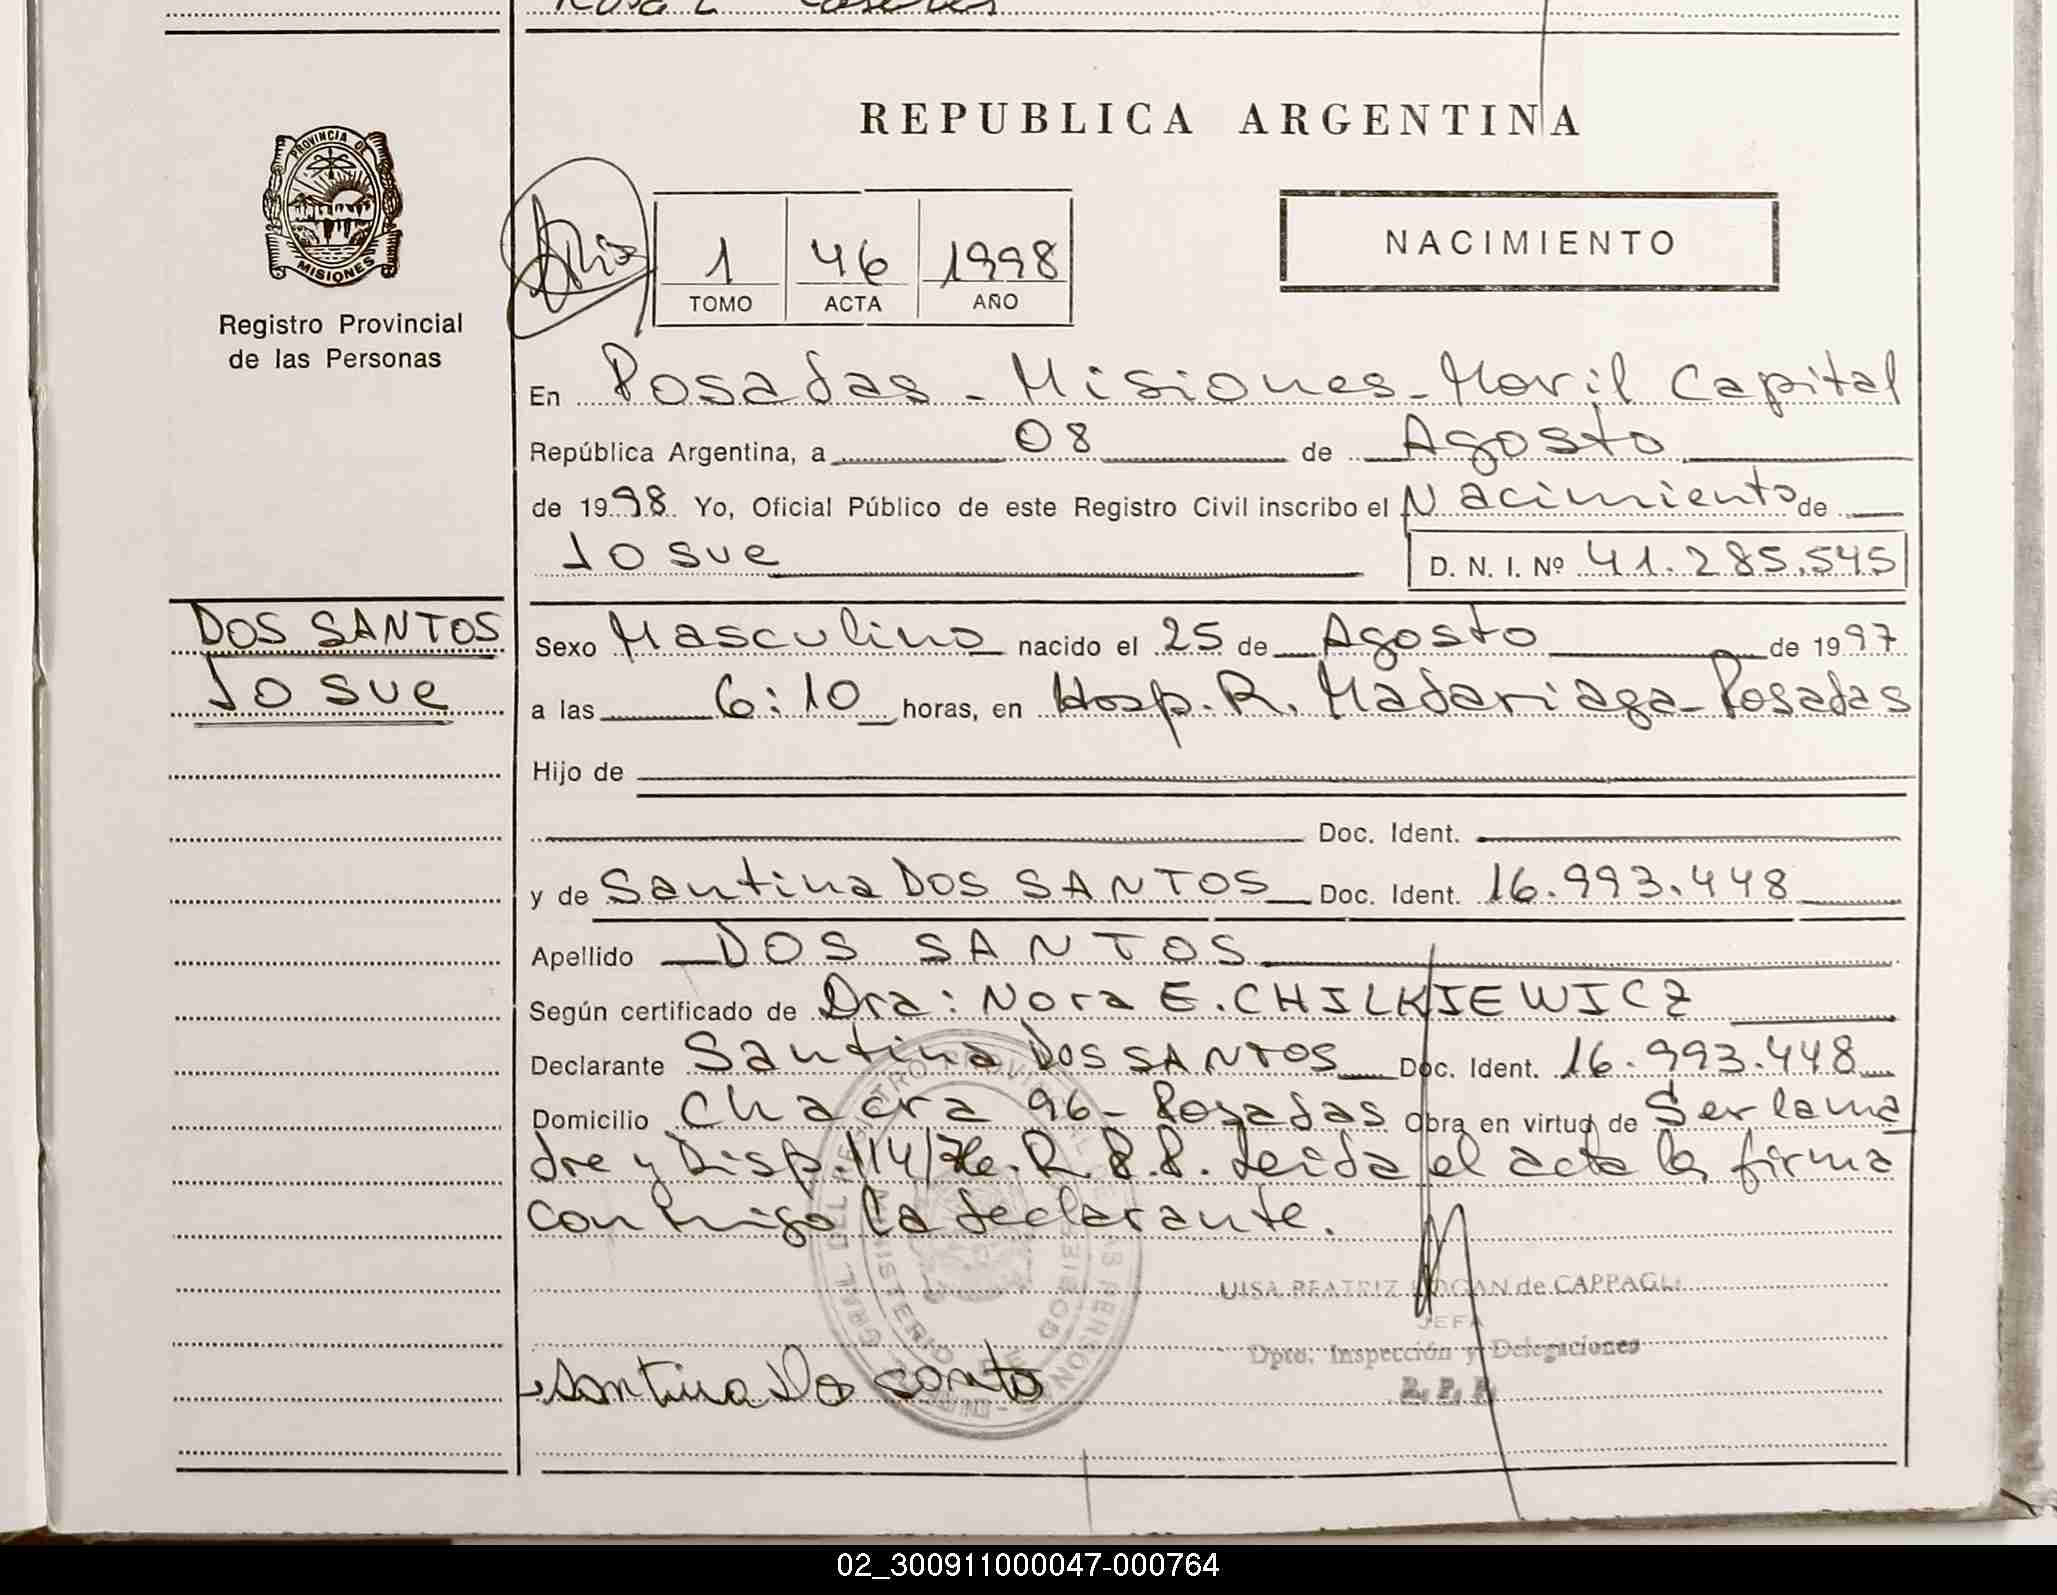 REPUBLICA ARGENTINA
PROVINCIA DE
MISIONES
Registro Provincial
de las Personas
1 46 1998
TOMO ACTA AÑO
NACIMIENTO
En Posadas - Misiones - Movil Capital
República Argentina, a 08 de Agosto
de 1998 Yo, Oficial Público de este Registro Civil inscribo el Nacimiento de
Josue D. N. I. Nº 41.285.545
DOS SANTOS
Josue
Sexo Masculino nacido el 25 de Agosto de 1997
a las 6:10 horas, en Hosp. R. Madariaga - Posadas
Hijo de
Doc. Ident.
y de Santina DOS SANTOS Doc. Ident. 16.993.448
Apellido DOS SANTOS
Según certificado de Dra: Nora E. CHILKIEWICZ
Declarante Santina DOS SANTOS Doc. Ident. 16.993.448
Domicilio Chacra 96 - Posadas Obra en virtud de Ser la ma
dre y Disp. 114/76. R.P.P. Leida el acta la firma
conmigo la declarante.
UISA BEATRIZ de CAPPAGLI
JEFA
Dpto. Inspección y Delegaciones
R. P. P.
Santina Do santo
02_300911000047-000764